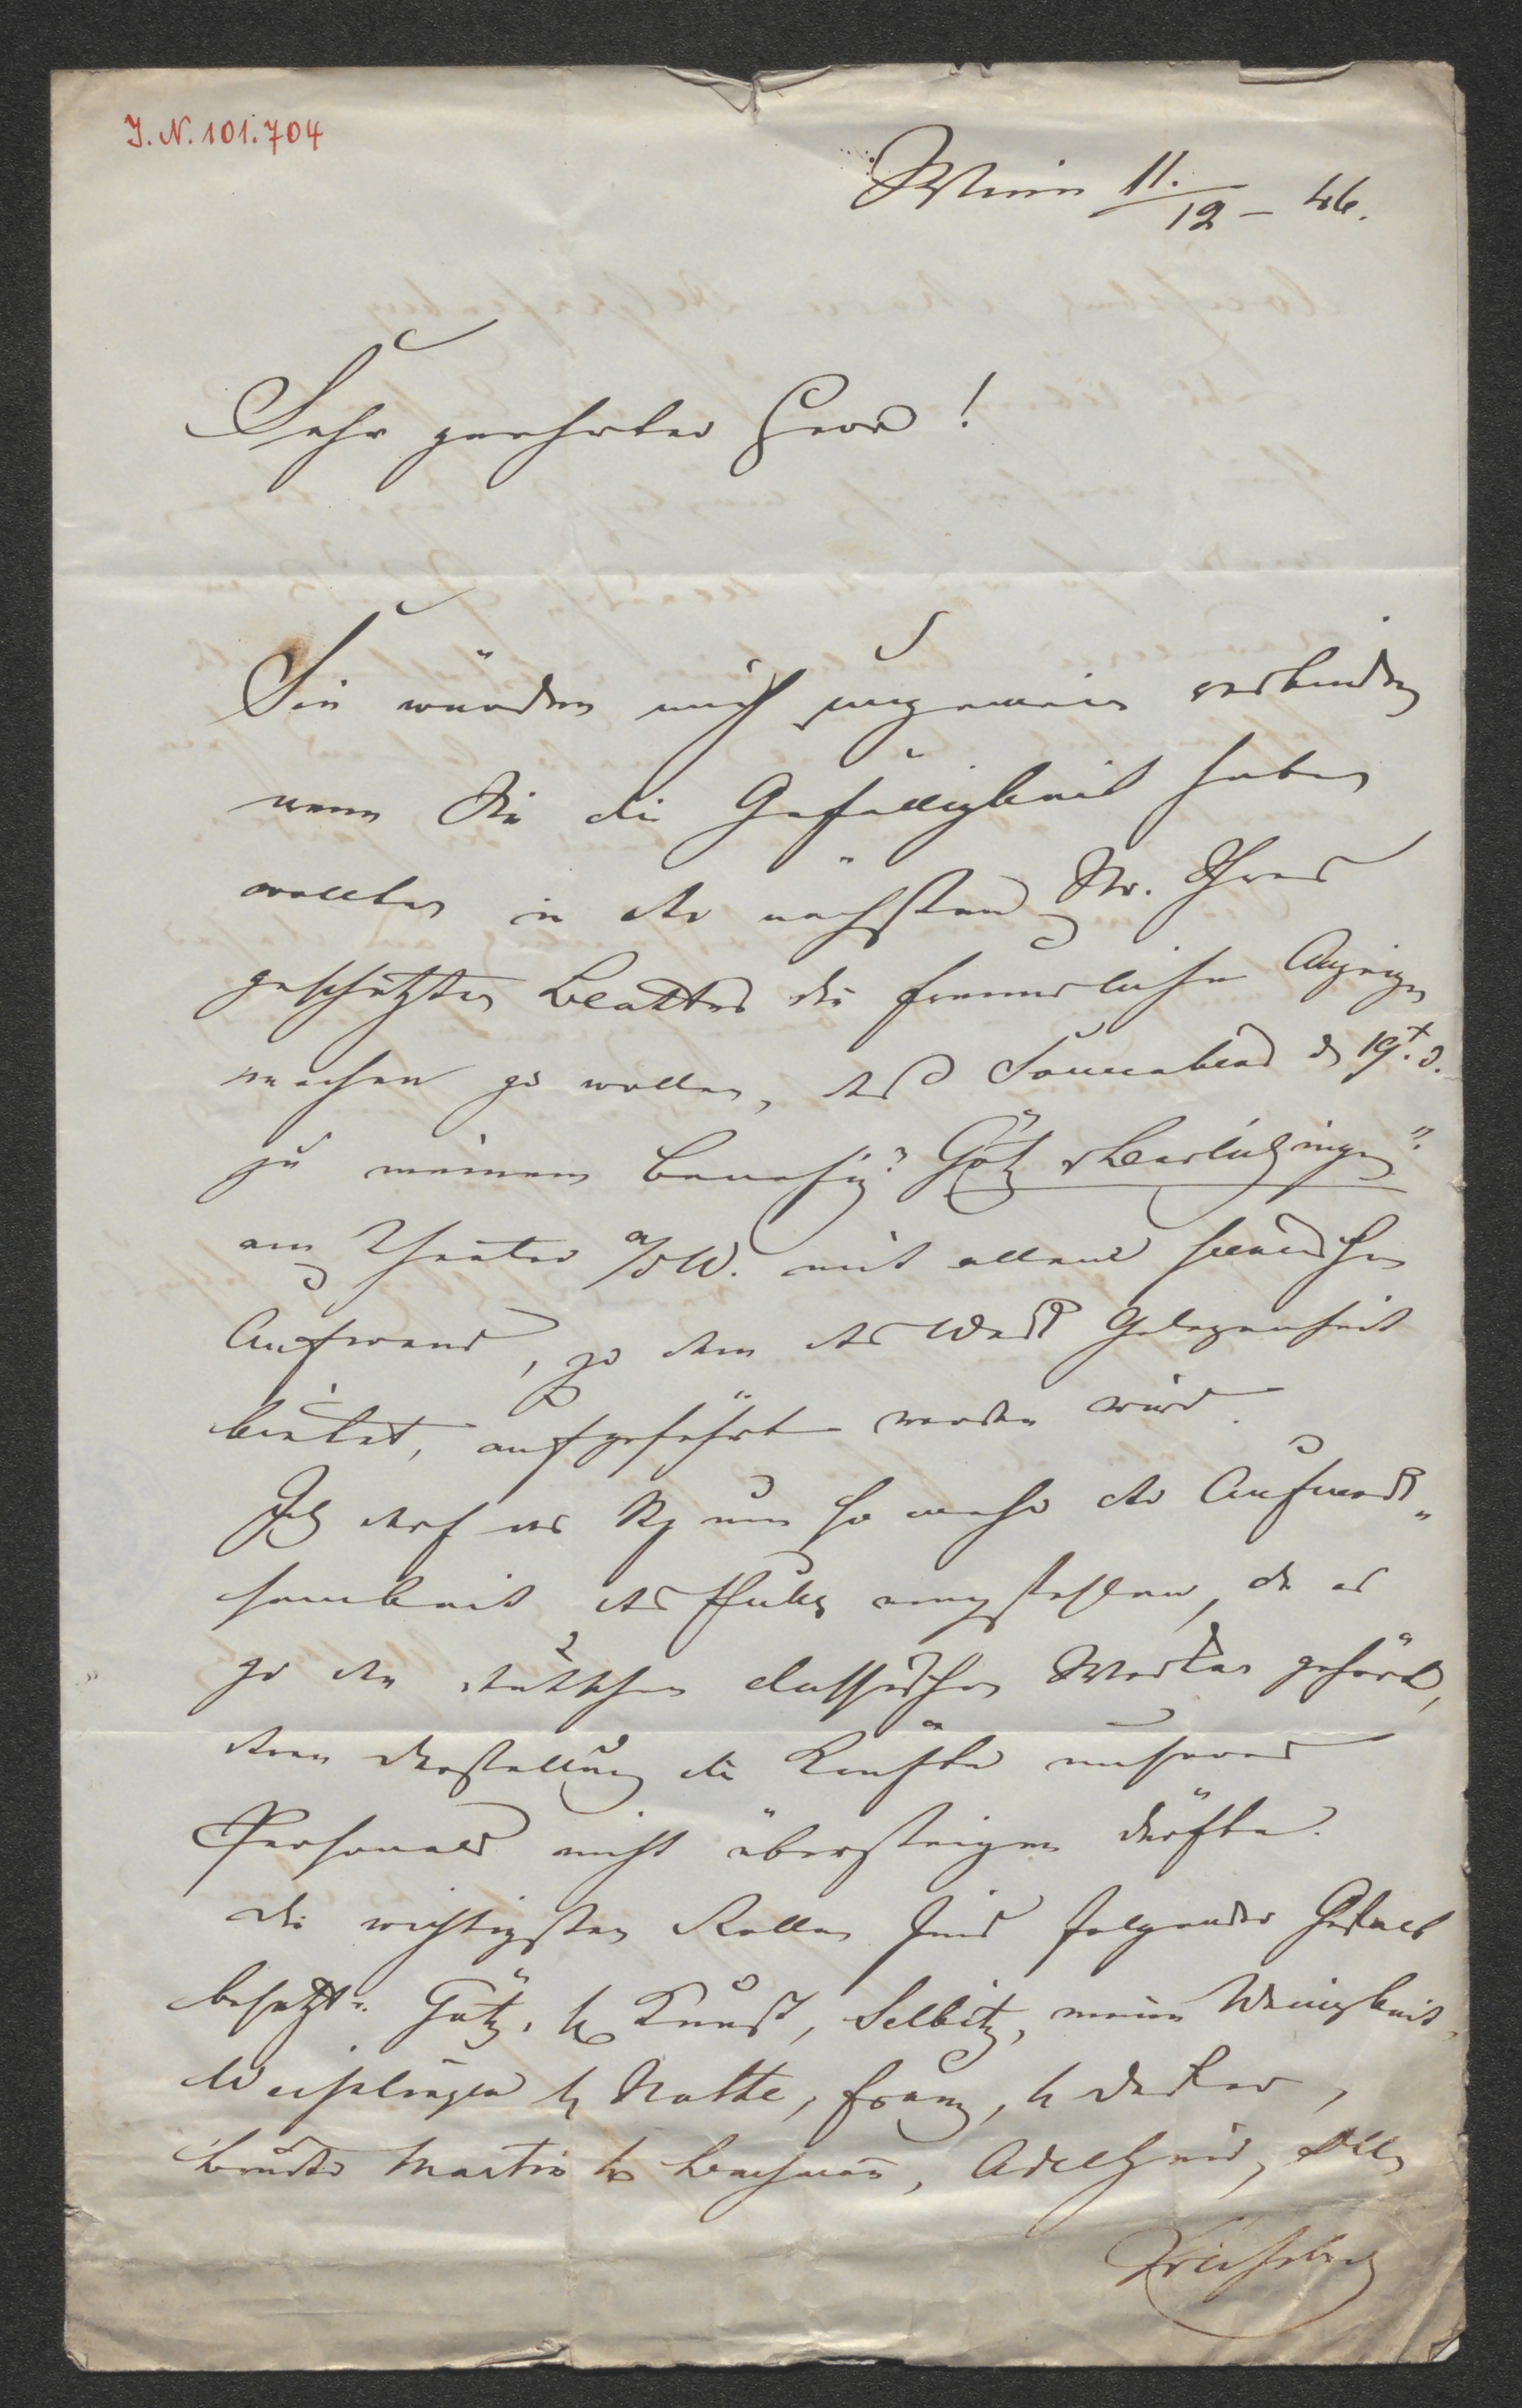 J. N. 101.704
Wien 11./12 – 46.
Sehr geehrter Herr!
Sie würden mich ungemein verbinden
wenn Sie die Gefälligkeit haben
wollten in der nächsten Nr. Ihres
geschätzten Blattes die freundliche Anzeige
machen zu wollen, daß Sonnabend d 19t. d.
zu meinem Benefiz "Götz v Berlichingen"
am Theater a/d W. mit allem
Aufwand, zu dem das Werk Gelegenheit
bietet, aufgeführt werden wird.
Ich darf es um so mehr der Aufmerk„
samkeit des empfehlen, da es
zu den deutschen classischen Werken gehört,
deren Darstellung die Kräfte unseres
Personals nicht übersteigen dürfte.
Die wichtigsten Rollen sind folgender Gestalt
besetzt: Götz, H Kunst, Selbitz, meine Wenigkeit,
Weislingen H Notte, Franz, H Decker,
Bruder Martin H Bachmann, Adelheid, Dlle